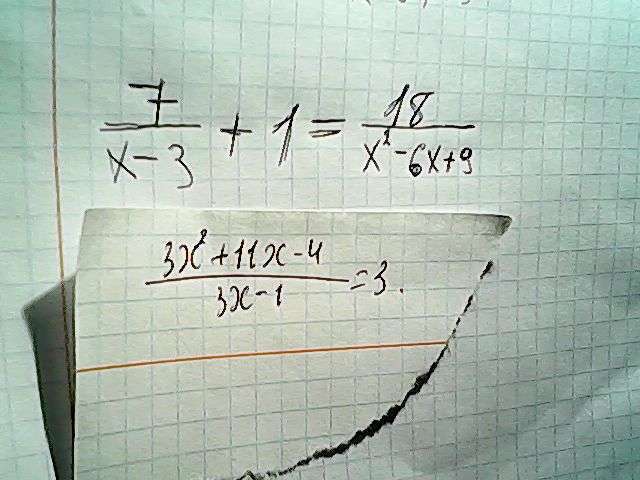 7/(x-3) + 1 = 18/(x²-6x+9)
(3x²+11x-4)/(3x-1) = 3.